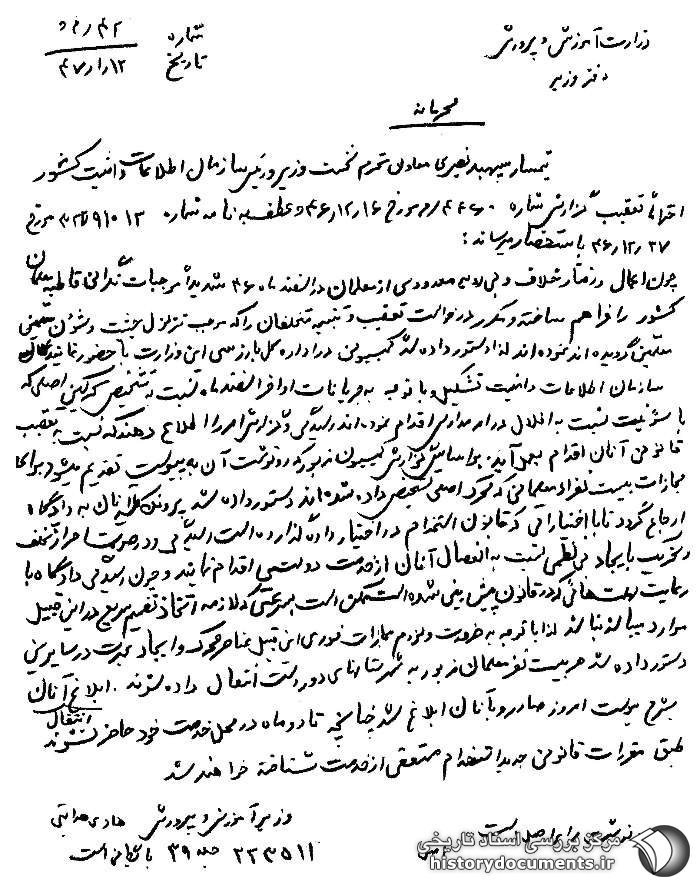 وزارت آموزش و پرورش
دفتر وزیر
شماره
تاریخ ۴۷ر۱ر۱۲
محرمانه
تیمسار سپهبد نصیری معاون محترم نخست وزیر و رئیس سازمان اطلاعات و امنیت کشور
احتراماً تعقیب گزارش شماره مورخ ۴۶ر۱۲ر۱۶ و عطف به نامه شماره مورخ
۴۶ر۱۲ر۲۷ باستحضار میرساند :
چون اعمال و رفتار خلاف و بی رویه معدودی از معلمان در اسفند ماه ۴۶ شدیداً موجبات نگرانی قاطبه معلمان
کشور را فراهم ساخته و مکرر درخواست تعقیب و تنبیه متخلفان را که موجب تزلزل حیثیت و شئون
معلمین گردیده اند نموده اند لذا دستور داده شد کمیسیونی در اداره کل بازرسی این وزارت با حضور نمایندگان
سازمان اطلاعات و امنیت تشکیل و با توجه به جریانات اواخر اسفند ماه نسبت به تشخیص محرکین اصلی که
با سوء نیت نسبت به اخلال در امر مدارس اقدام نموده اند رسیدگی و گزارش امر را اطلاع دهند که نسبت به تعقیب
قانونی آنان اقدام بعمل آید. براساس گزارش کمیسیون مزبور که رونوشت آن به پیوست تقدیم میشود برای
مجازات بیست نفر از معلمانی که محرک اصلی تشخیص داده شده اند دستور داده شد پرونده کلیه آنان به دادگاه
ارجاع گردد تا با اختیاراتی که قانون استخدام در اختیار دادگاه گذارده است رسیدگی و در صورت احراز تخلف
و تحریک یا ایجاد بی نظمی نسبت به انفصال آنان از خدمت دولت اقدام نمایند و چون رسیدگی دادگاه با
رعایت مدت هائی که در قانون پیش بینی شده است ممکن است بسرعتی که لازمه اتخاذ تصمیم سریع در این قبیل
موارد میباشد نباشد لذا با توجه به ضرورت و لزوم مجازات فوری این قبیل عناصر محرک و ایجاد عبرت در سایرین
دستور داده شد هر بیست نفر معلمان مزبور به شهرستانهای دور دست انتقال داده شوند. ابلاغ آنان
انتقال
بشرح پیوست امروز صادر و بآنان ابلاغ شد چنانچه تا دو ماه در محل خدمت خود حاضر نشوند
طبق مقررات قانونی جدید استخدام مستعفی از خدمت شناخته خواهند شد
وزیر آموزش و پرورش هادی هدایتی
رونوشت برابر اصل است
۲۲۳۵۱۱ جلد ۳۹ بایگانی است
مرکز بررسی اسناد تاریخی
historydocuments.ir